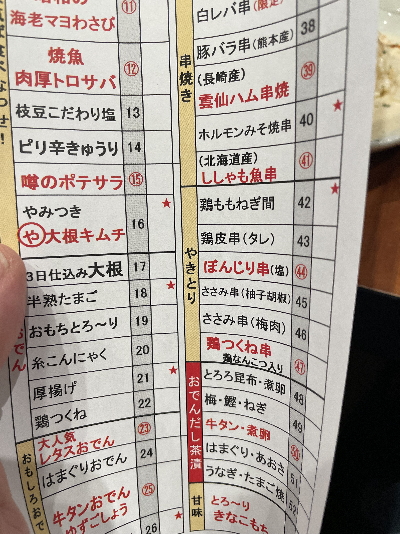 海老マヨわさび
⑪
焼魚
肉厚トロサバ
⑫
枝豆こだわり塩 13
ピリ辛きゅうり 14
噂のポテサラ ⑮
やみつき
や大根キムチ
16
★
3日仕込み大根 17
半熟たまご 18
★
おもちとろ〜り 19
糸こんにゃく 20
厚揚げ 21
★
鶏つくね 22
おもしろおで
大人気
レタスおでん
㉓
はまぐりおでん 24
牛タンおでん
ゆずごしょう
㉕
26
★
串焼き
白レバ串(限定)
豚バラ串(熊本産) 38
(長崎産)
雲仙ハム串焼
㊴
ホルモンみそ焼串 40
★
(北海道産)
ししゃも魚串
㊶
やきとり
鶏ももねぎ間 42
★
鶏皮串(タレ) 43
ぼんじり串(塩) ㊹
ささみ串(柚子胡椒) 45
ささみ串(梅肉) 46
鶏つくね串
鶏なんこつ入り
㊼
おでんだし茶漬
とろろ昆布・煮卵 48
梅・鰹・ねぎ 49
牛タン・煮卵 ㊿
はまぐり・あおさ 51
うなぎ・たまご焼 52
甘味
とろ〜り
きなこもち